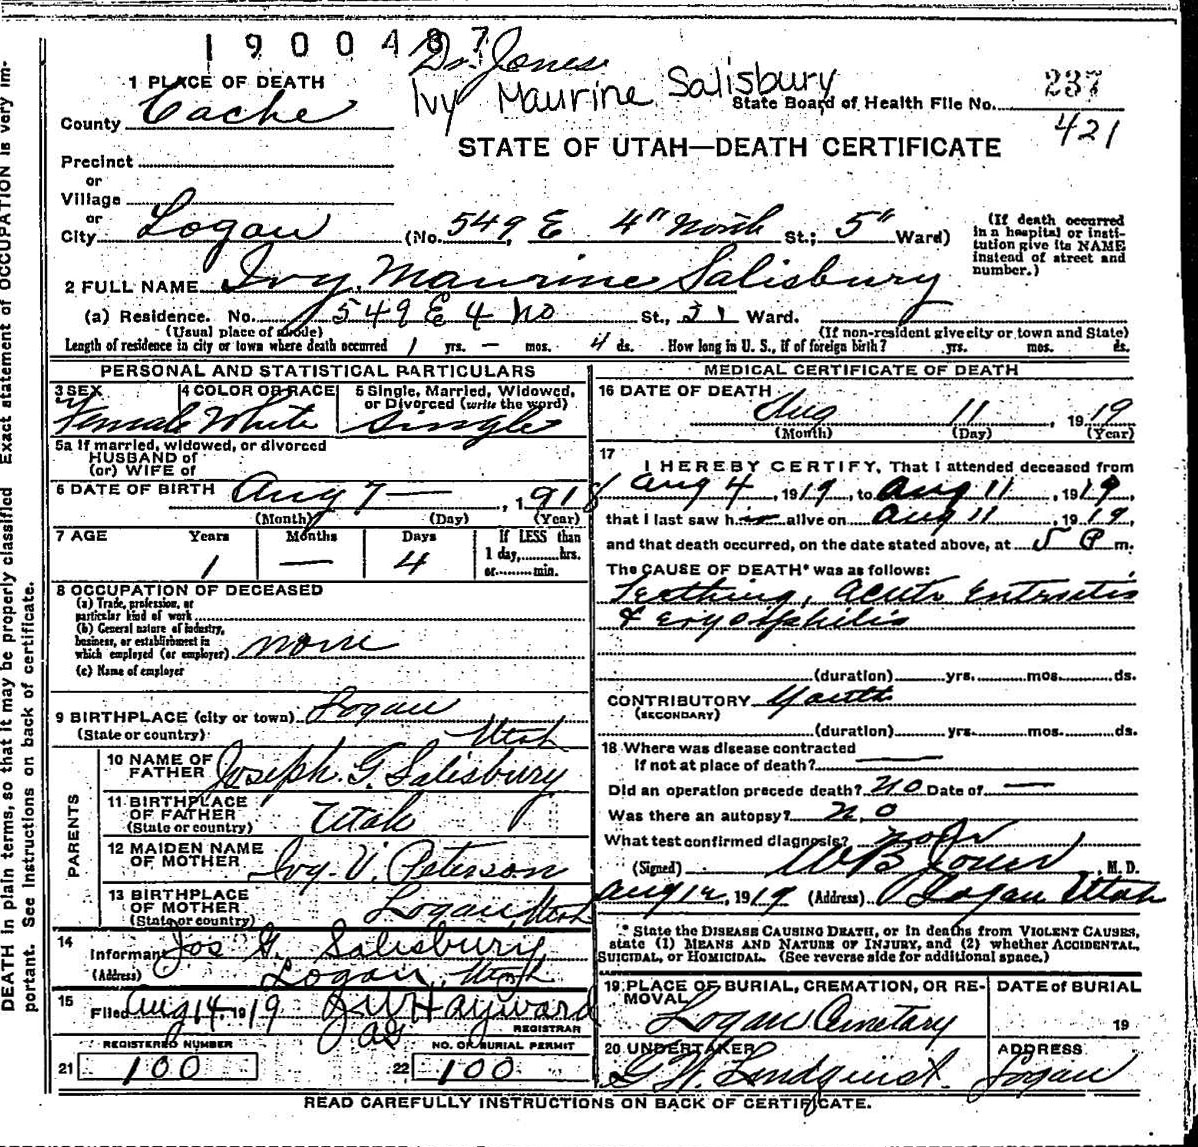 1900487
Dr. Jones
Ivy Maurine Salisbury
1 PLACE OF DEATH
County Cache
State Board of Health File No. 237
421
STATE OF UTAH—DEATH CERTIFICATE
Precinct
or
Village
or
City Logan (No. 549 E 4" North St.; 5" Ward)
(If death occurred in a hospital or institution give its NAME instead of street and number.)
2 FULL NAME Ivy Maurine Salisbury
(a) Residence. No. 549 E 4 No St., Ward.
(Usual place of abode) (If non-resident give city or town and State)
Length of residence in city or town where death occurred 1 yrs. — mos. 4 ds. How long in U. S., if of foreign birth? yrs. mos. ds.
PERSONAL AND STATISTICAL PARTICULARS
3 SEX Female
4 COLOR OR RACE White
5 Single, Married, Widowed, or Divorced (write the word) Single
5a If married, widowed, or divorced
HUSBAND of
(or) WIFE of
6 DATE OF BIRTH Aug 7 — , 1918
(Month) (Day) (Year)
7 AGE Years Months Days If LESS than
1 — 4 1 day, hrs.
or min.
8 OCCUPATION OF DECEASED
(a) Trade, profession, or particular kind of work
(b) General nature of industry, business, or establishment in which employed (or employer) none
(c) Name of employer
9 BIRTHPLACE (city or town) Logan
(State or country) Utah
PARENTS
10 NAME OF FATHER Joseph. G. Salisbury
11 BIRTHPLACE OF FATHER (State or country) Utah
12 MAIDEN NAME OF MOTHER Ivy. V. Peterson
13 BIRTHPLACE OF MOTHER (State or country) Logan, Utah
14 Informant Jos G. Salisbury
(Address) Logan, Utah
15 Filed Aug 14, 1919 Hayward
REGISTRAR
REGISTERED NUMBER NO. OF BURIAL PERMIT
21 100 22 100
MEDICAL CERTIFICATE OF DEATH
16 DATE OF DEATH
Aug 11, 1919
(Month) (Day) (Year)
17
I HEREBY CERTIFY, That I attended deceased from
Aug 4, 1919, to Aug 11, 1919,
that I last saw h er alive on Aug 11, 1919,
and that death occurred, on the date stated above, at 5 P m.
The CAUSE OF DEATH* was as follows:
Teething, Acute
(duration) yrs. mos. ds.
CONTRIBUTORY
(SECONDARY)
(duration) yrs. mos. ds.
18 Where was disease contracted
If not at place of death? —
Did an operation precede death? No Date of —
Was there an autopsy? No
What test confirmed diagnosis?
(Signed) W B Jones, M. D.
Aug 12, 1919 (Address) Logan Utah
* State the DISEASE CAUSING DEATH, or in deaths from VIOLENT CAUSES, state (1) MEANS AND NATURE OF INJURY, and (2) whether ACCIDENTAL, SUICIDAL, or HOMICIDAL. (See reverse side for additional space.)
19 PLACE OF BURIAL, CREMATION, OR REMOVAL DATE of BURIAL
Logan Cemetary 19
20 UNDERTAKER ADDRESS
G. W. Lindquist. Logan
READ CAREFULLY INSTRUCTIONS ON BACK OF CERTIFICATE.
DEATH in plain terms, so that it may be properly classified Exact statement of OCCUPATION is very important. See Instructions on back of certificate.